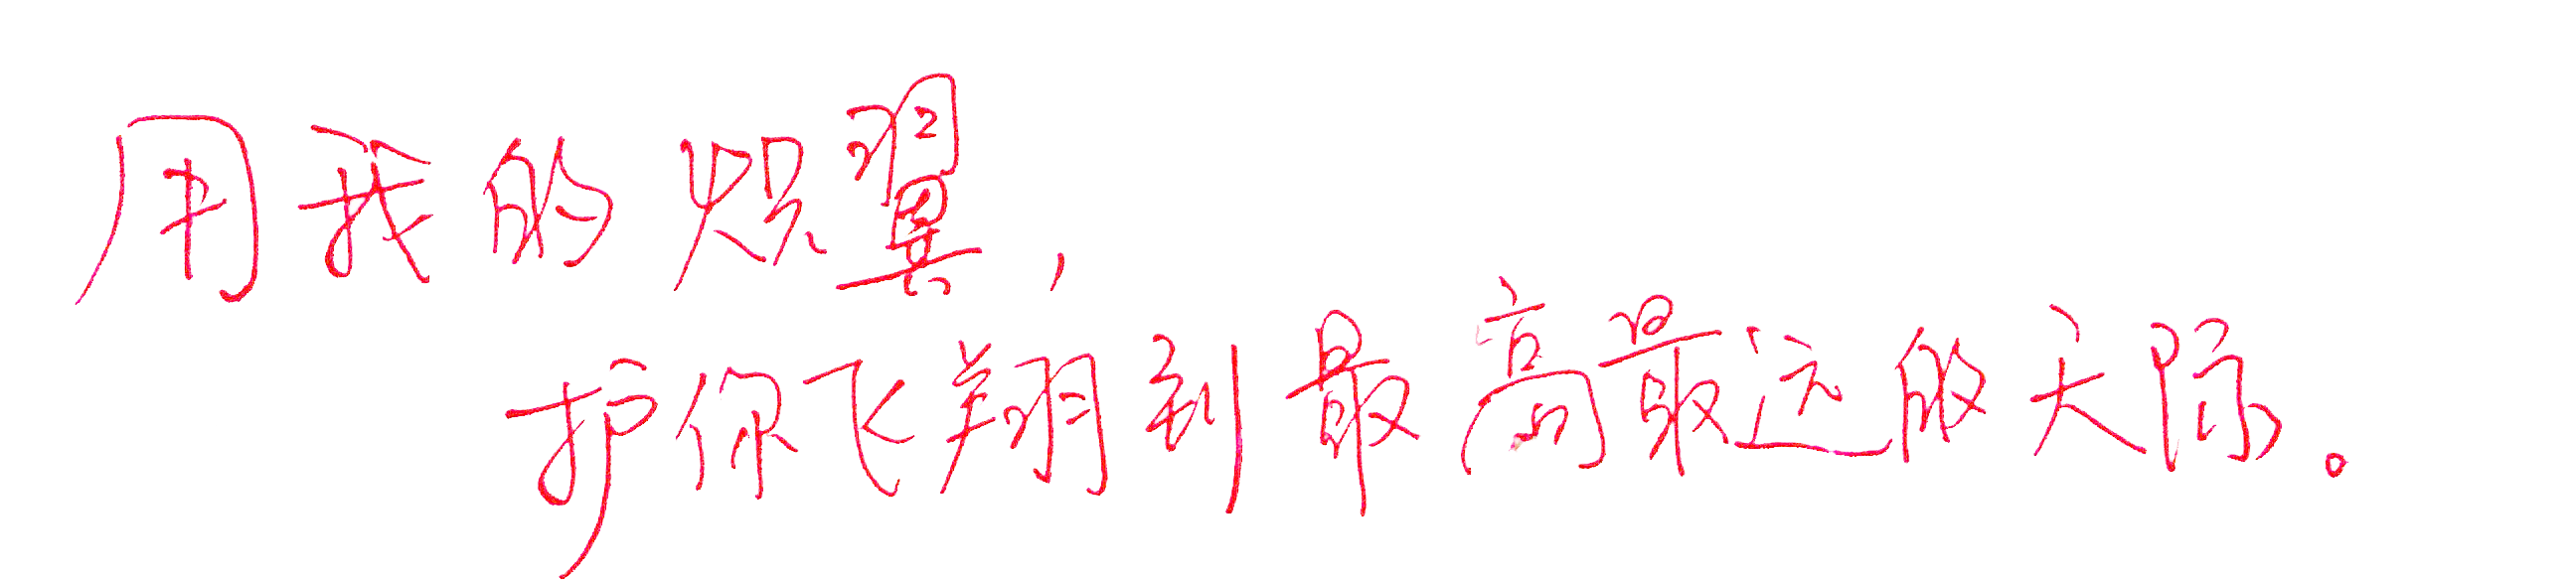 用我的炽翼,
护你飞翔到最高最远的天际。